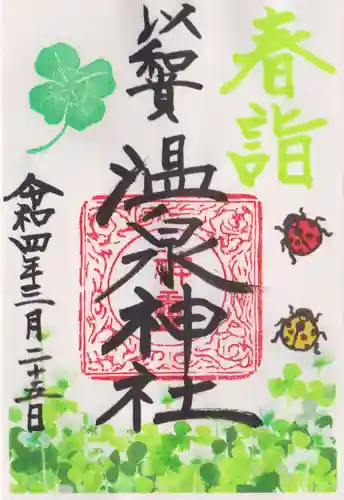 春詣
以
温泉神社
令和四年三月二十五日